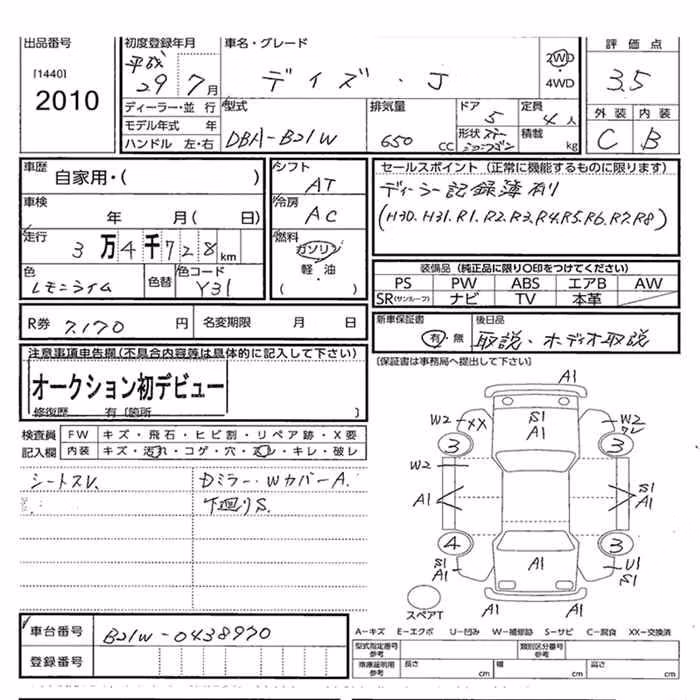 出品番号
[1440]
2010
初度登録年月
平成
29年 7月
車名・グレード
デイズ・J
2WD
・
4WD
評価点
3.5
外装 内装
C B
ディーラー・並行
モデル年式 年
ハンドル 左・右
型式
DBA-B21W
排気量
650 CC
ドア
5
形状
定員
4人
積載
kg
車歴
自家用・( )
車検
年 月( 日)
走行
3万4千728km
色
レモンライム
色替
色コード
Y31
シフト
AT
冷房
AC
燃料
ガソリン
軽・油
( )
セールスポイント (正常に機能するものに限ります)
ディーラー記録簿有り
(H30、H31、R1、R2、R3、R4、R5、R6、R7、R8)
装備品 (純正品に限り○印をつけてください)
PS PW ABS エアB AW
SR(サンルーフ) ナビ TV 本革
R券 7,170 円
名変期限 月 日
新車保証書
有・無
後日品
取説・オーディオ取説
(保証書は事務局へ提出して下さい)
注意事項申告欄(不具合内容等は具体的に記入して下さい)
オークション初デビュー
修復歴 有 〔箇所 〕
検査員
記入欄
FW キズ・飛石・ヒビ割・リペア跡・X要
内装 キズ・汚れ・コゲ・穴・スレ・キレ・破レ
シートスV.
Dミラー・WカバーA.
下廻りS.
A1
S1
A1
W2 XX
W2
3
3
W2
A1
S1
A1
4
3
S1
A1
A1
U1
S1
スペアT
A1
A-キズ E-エクボ U-凹み W-補修跡 S-サビ C-腐食 XX-交換済
車台番号
B21W-0438970
登録番号
型式指定番号
参考
類別区分番号
参考
車庫証明用
参考
長さ cm
幅 cm
高さ cm